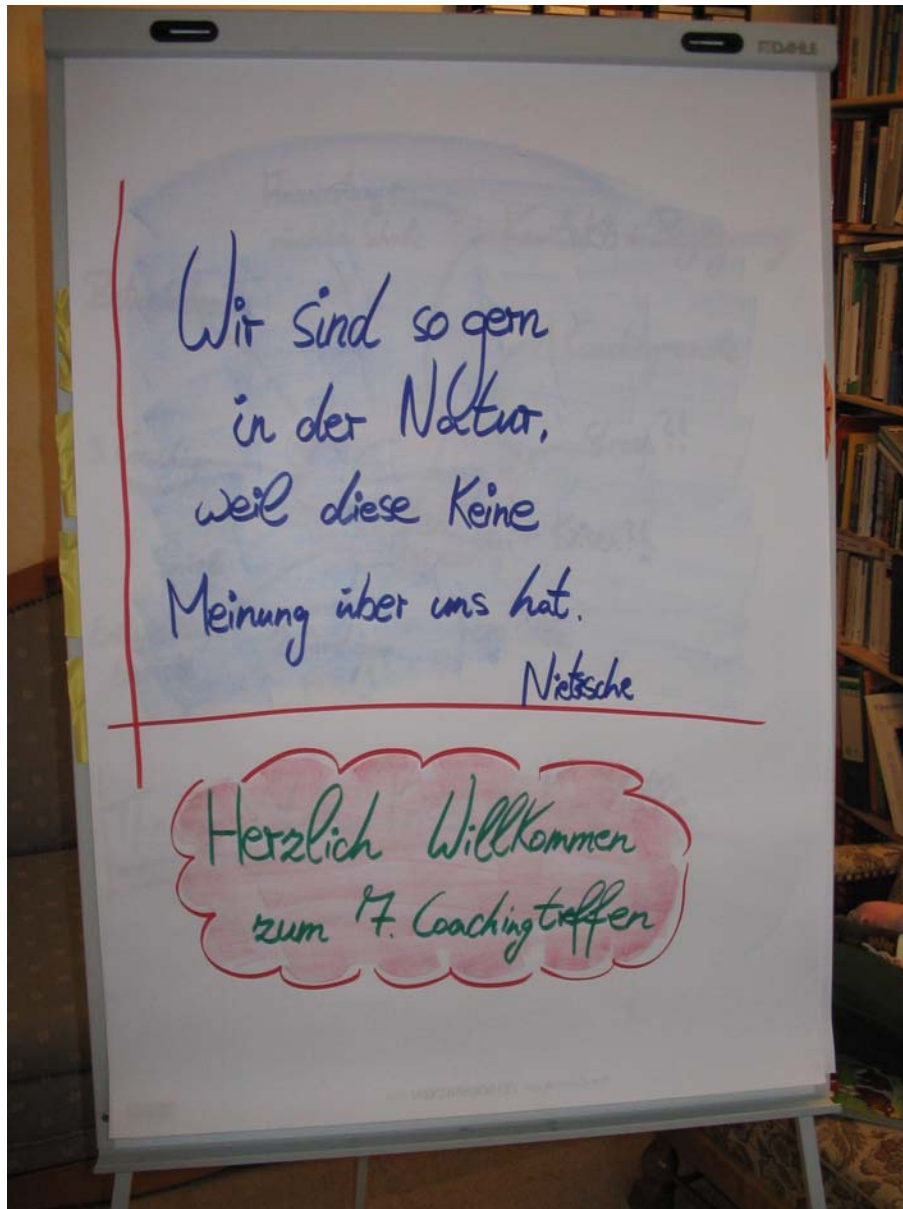 DAHLE
Wir sind so gern
in der Natur,
weil diese Keine
Meinung über uns hat.
Nietzsche
Herzlich Willkommen
zum 7. Coachingtreffen